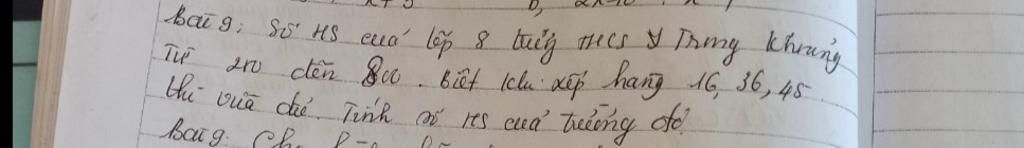 Bài 9: Số HS cuả lớp 8 trường THCS Y Trong khoảng
Từ 200 đến 800. Biết khi xếp hàng 16, 36, 45
thì vừa đủ. Tính số HS cuả trường đó.
Bài 9: